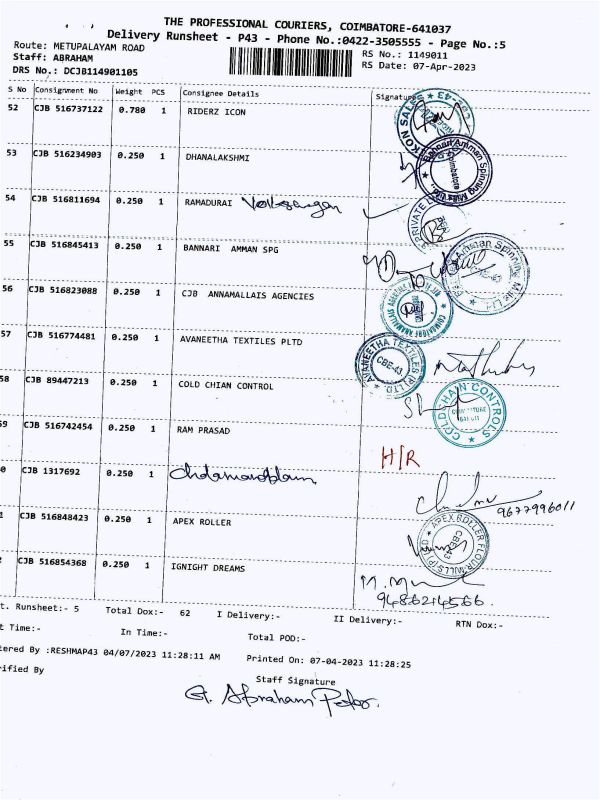 THE PROFESSIONAL COURIERS, COIMBATORE-641037
Delivery Runsheet - P43 - Phone No.:0422-3505555 - Page No.:5
Route: METUPALAYAM ROAD RS No.: 1149011
Staff: ABRAHAM RS Date: 07-Apr-2023
DRS No.: DCJB114901105
S No Consignment No Weight PCS Consignee Details Signature
52 CJB 516737122 0.780 1 RIDERZ ICON
53 CJB 516234903 0.250 1 DHANALAKSHMI
54 CJB 516811694 0.250 1 RAMADURAI
55 CJB 516845413 0.250 1 BANNARI AMMAN SPG
56 CJB 516823088 0.250 1 CJB ANNAMALLAIS AGENCIES
57 CJB 516774481 0.250 1 AVANEETHA TEXTILES PLTD
58 CJB 89447213 0.250 1 COLD CHIAN CONTROL
59 CJB 516742454 0.250 1 RAM PRASAD H/R
0 CJB 1317692 0.250 1
9677996011
1 CJB 516848423 0.250 1 APEX ROLLER
CJB 516854368 0.250 1 IGNIGHT DREAMS
9486214566
t. Runsheet:- 5 Total Dox:- 62 I Delivery:- II Delivery:- RTN Dox:-
t Time:- In Time:- Total POD:-
tered By :RESHMAP43 04/07/2023 11:28:11 AM Printed On: 07-04-2023 11:28:25
rified By
Staff Signature
G. Abraham
Bannari Amman Spinning Mills Ltd.
Coimbatore
PRIVATE
COIMBATORE ANNAMALLAIS AGENCIES
AVANEETHA TEXTILES (P) LTD.
CBE-43
COLDCHAIN CONTROLS
APEX ROLLER FLOUR MILLS (P) LTD
CBE-43